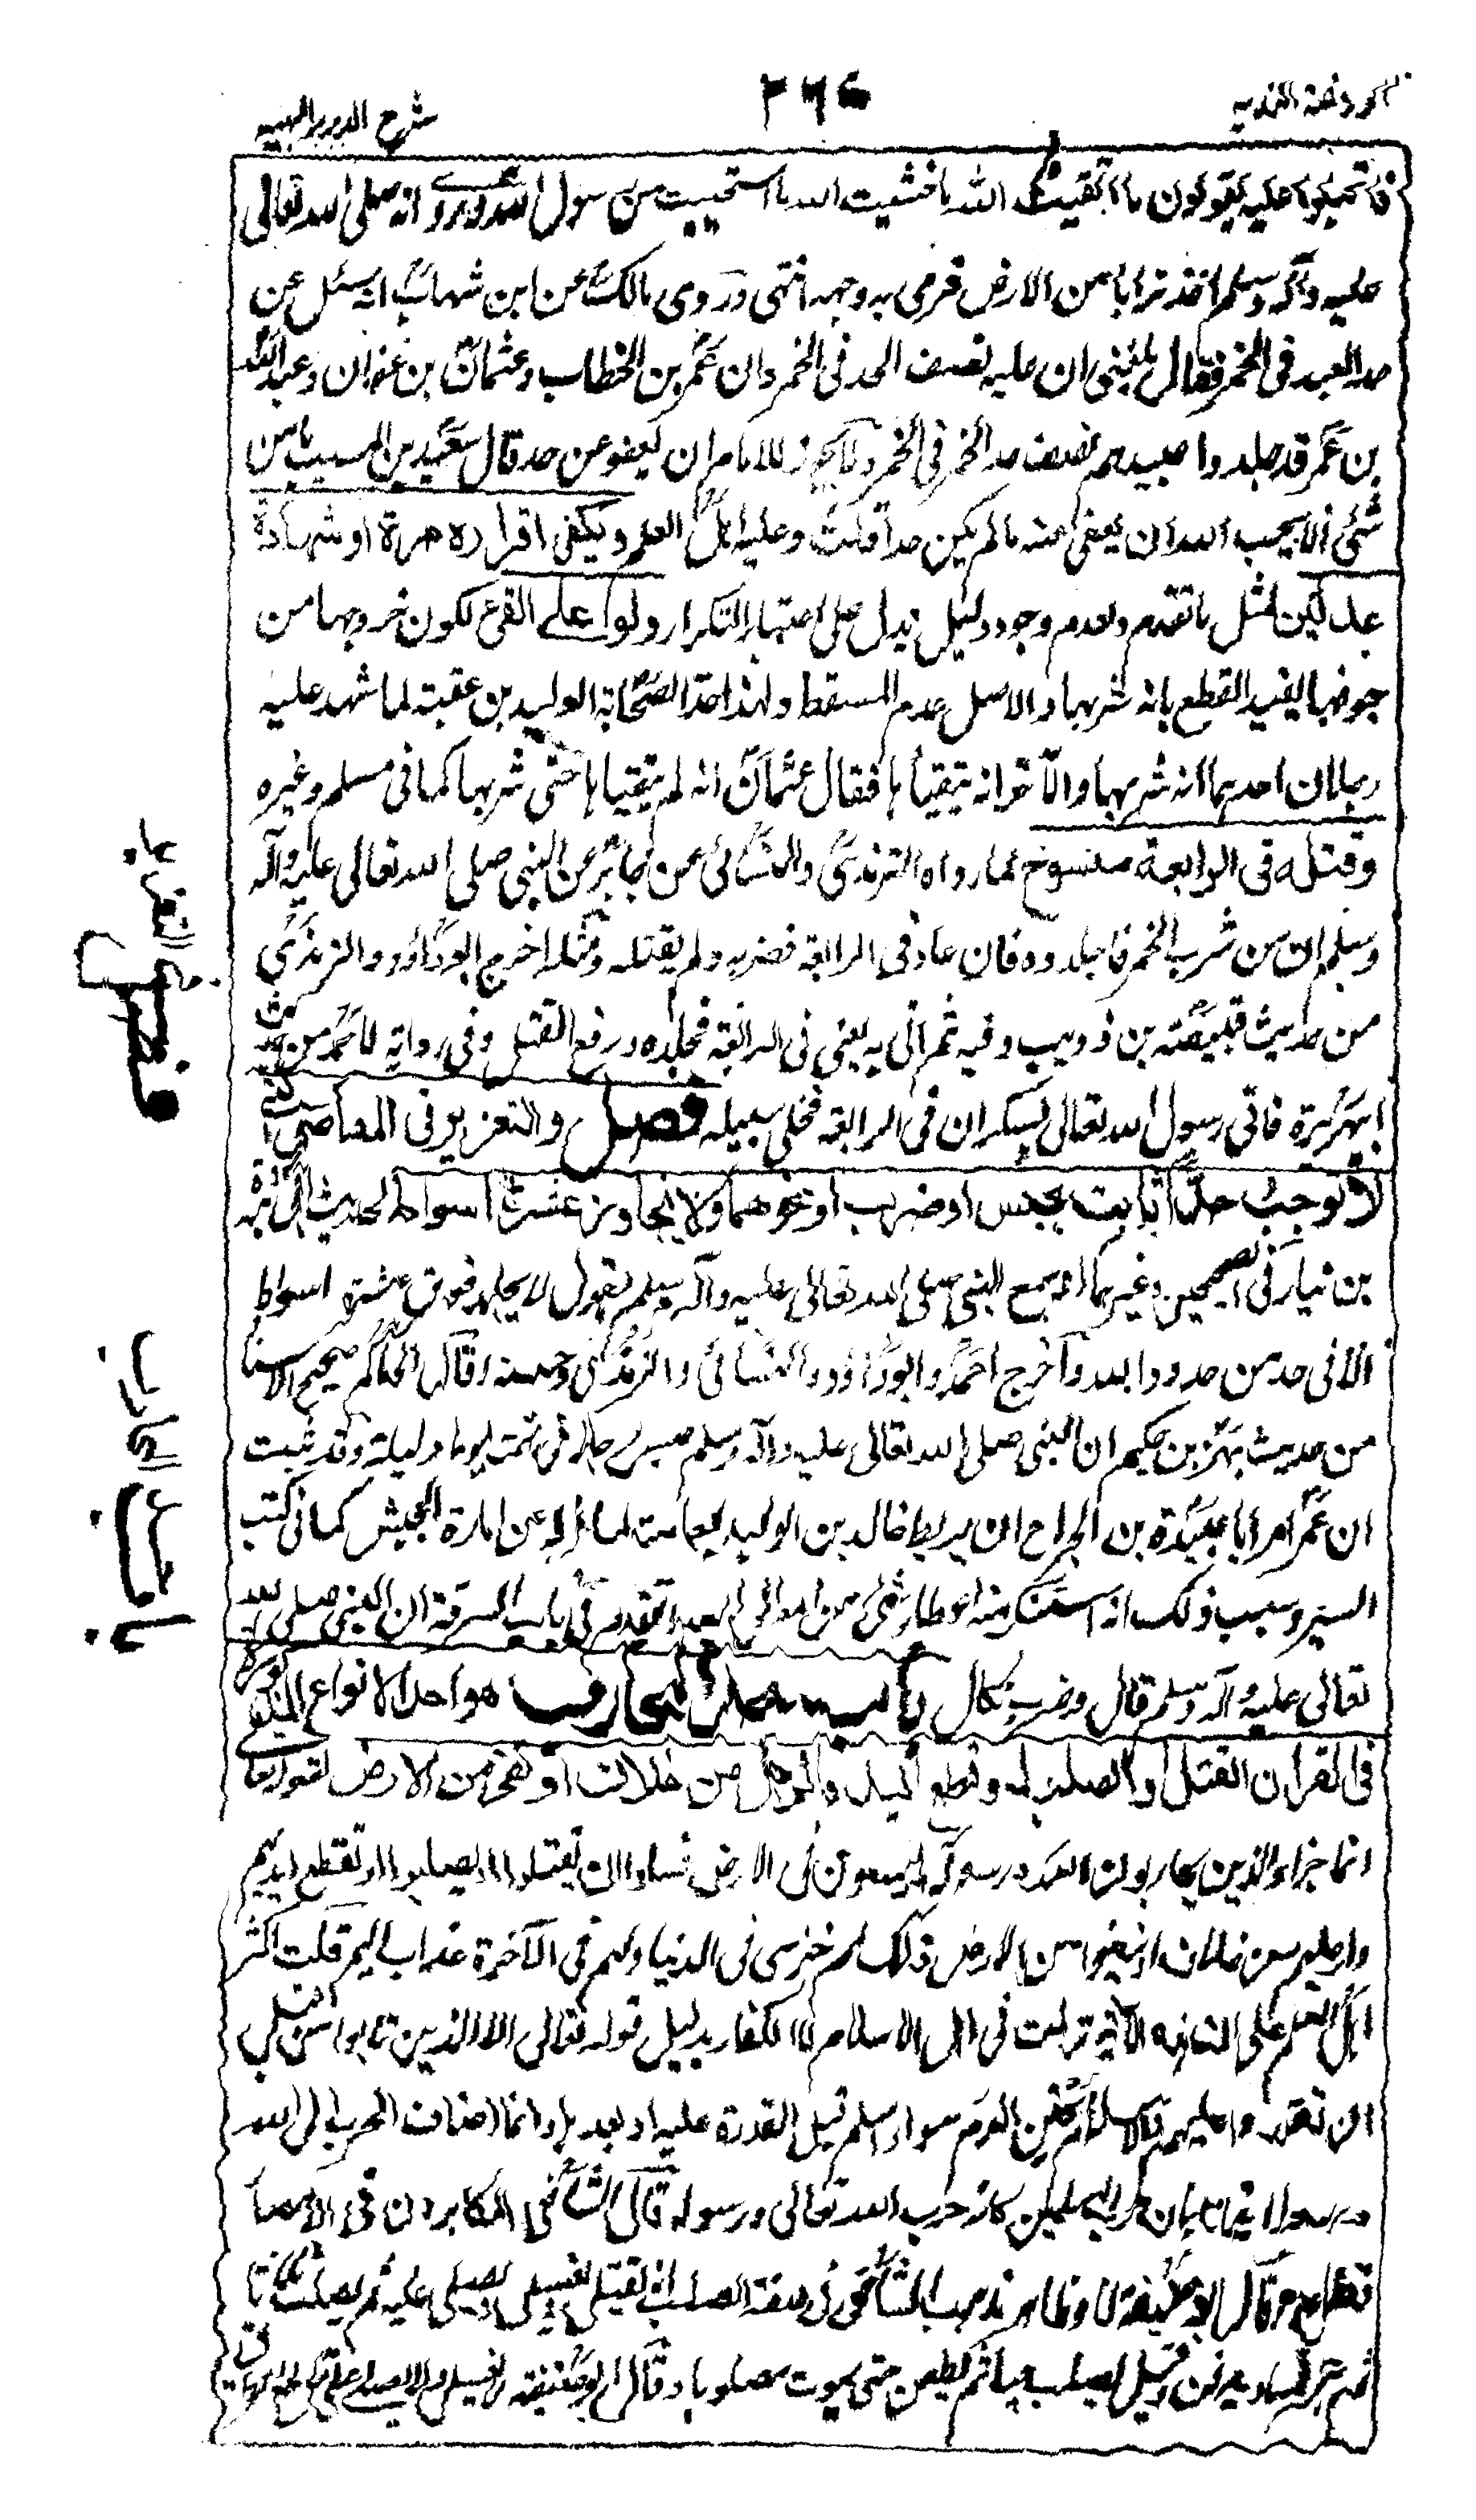 الروضة الندية
٢٦٤
شرح الدرر البهية
فاقبلوا عليه يقولون ما اتقيت الله ما خشيت الله ما استحييت من رسول الله وروى انه صلى الله تعالى
عليه وآله وسلم اخذ ترابا من الارض فرمى به وجهه انتهى وروى مالك عن ابن شهاب انه سئل عن
حد العبد فى الخمر فقال بلغنى ان عليه نصف الحد فى الخمر وان عمر بن الخطاب وعثمان بن عفان وعبد الله
بن عمر قد جلدوا عبيدهم نصف حد الخمر فى الخمر ولا يجوز للامام ان يعفو عن حد قال سعيد بن المسيب ما من
شئ الا يحب الله ان يعفى عنه ما لم يكن حدا قلت وعليه اهل العلم ويكفى اقراره مرة او شهادة
عدلين لمثل ما تقدم ولعدم وجود دليل يدل على اعتبار التكرار ولو على القئ لكون خروجها من
جوفها يفيد القطع بانه شربها والاصل عدم المسقط ولهذا حد الصحابة الوليد بن عقبة لما شهد عليه
رجلان احدهما انه شربها والآخر انه يتقيأها فقال عثمان انه لم يتقيأها حتى شربها كما فى مسلم وغيره
وقتله فى الرابعة منسوخ لما رواه الترمذى والنسائى عن جابر عن النبى صلى الله تعالى عليه وآله
وسلم ان من شرب الخمر فاجلدوه فان عاد فى الرابعة فضربه ولم يقتله ومثله اخرج ابو داؤد والترمذى
من حديث قبيصة بن ذويب وفيه ثم اتى به يعنى فى الرابعة فجلده ورفع القتل وفى رواية لاحمد من حديث
ابى هريرة فاتى رسول الله تعالى بسكران فى الرابعة فخلى سبيله فصل والتعزير فى المعاصى التى
لا توجب حدا ثابت بحبس او ضرب او نحوهما ولا يجاوز عشرة اسواط لحديث ابى بردة
بن نيار فى الصحيحين وغيرهما انه سمع النبى صلى الله تعالى عليه وآله وسلم يقول لا يجلد فوق عشرة اسواط
الا فى حد من حدود الله واخرج احمد وابو داؤد والنسائى والترمذى وحسنه وقال الحاكم صحيح الاسناد
من حديث بهز بن حكيم ان النبى صلى الله تعالى عليه وآله وسلم حبس رجلا فى تهمة يوما وليلة وقد ثبت
ان عمر امر ابا عبيدة بن الجراح ان يربط خالد بن الوليد بعمامته لما عزله عن امارة الجيش كما فى كتب
السير وسبب ذلك انه استنكر منه اعطاء شئ من اموال الله وتقدم فى باب السرقة ان النبى صلى الله
تعالى عليه وآله وسلم قال وضرب نكال باب حد المحارب هو احد الانواع المذكورة
فى القرآن القتل او الصلب او قطع اليد والرجل من خلاف او نفى من الارض لقوله تعالى
انما جزاء الذين يحاربون الله ورسوله ويسعون فى الارض فسادا ان يقتلوا او يصلبوا او تقطع ايديهم
وارجلهم من خلاف او ينفوا من الارض ذلك لهم خزى فى الدنيا ولهم فى الآخرة عذاب اليم قلت اكثر
اهل العلم على ان هذه الآية نزلت فى اهل الاسلام لا الكفار بدليل قوله تعالى الا الذين تابوا من قبل
ان تقدروا عليهم والاسلام يحقن الدم سواء اسلم قبل القدرة عليه او بعدها وانما اضاف الحرب الى الله
ورسوله حرب المسلمين كانه حرب الله تعالى ورسوله قال الشافعى المكابرون فى الامصار
قطاع وقال ابو حنيفة لا وظاهر مذهب الشافعى فى صفة الصلب انه يقتل ويغسل ويصلى عليه ثم يصلب ثلاثا
ثم ينزل وقيل يصلب حيا ثم يطعن حتى يموت مصلوبا وقال ابو حنيفة لا يغسل ولا يصلى على
فصل فى التعزير
باب حد المحارب